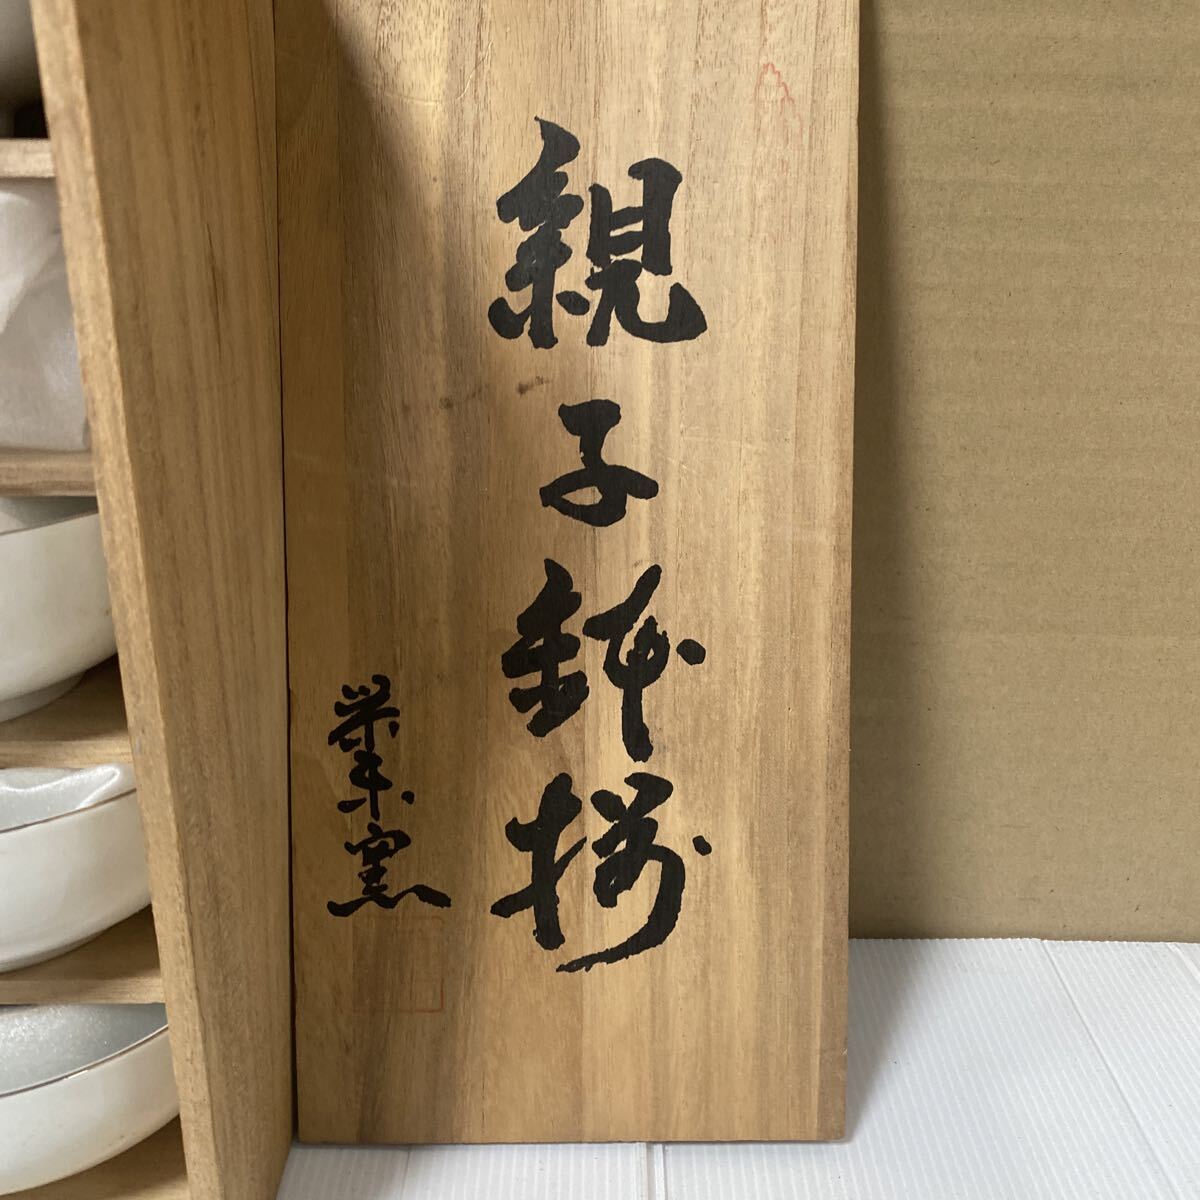 親子鉢揃
栄木窯